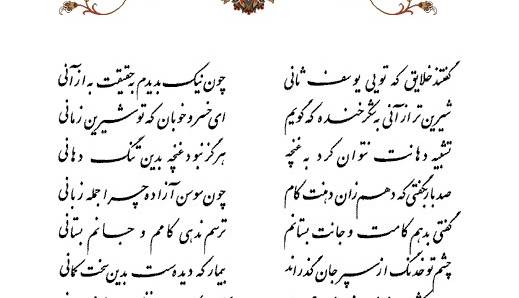 گفتند خلایق که تویی یوسف ثانی چون نیک بدیدم به حقیقت به از آنی
شیرین تر از آنی به شکرخنده که گویم ای خسرو خوبان که تو شیرین زمانی
تشبیه دهانت نتوان کرد به غنچه هرگز نبود غنچه بدین تنگ دهانی
صد بار بگفتی که دهم زان دهنت کام چون سوسن آزاده چرا جمله زبانی
گفتی بدهم کامت و جانت بستانم ترسم ندهی کامم و جانم بستانی
چشم تو خدنگ از سپر جان گذراند بیمار که دیده‌ست بدین سخت کمانی